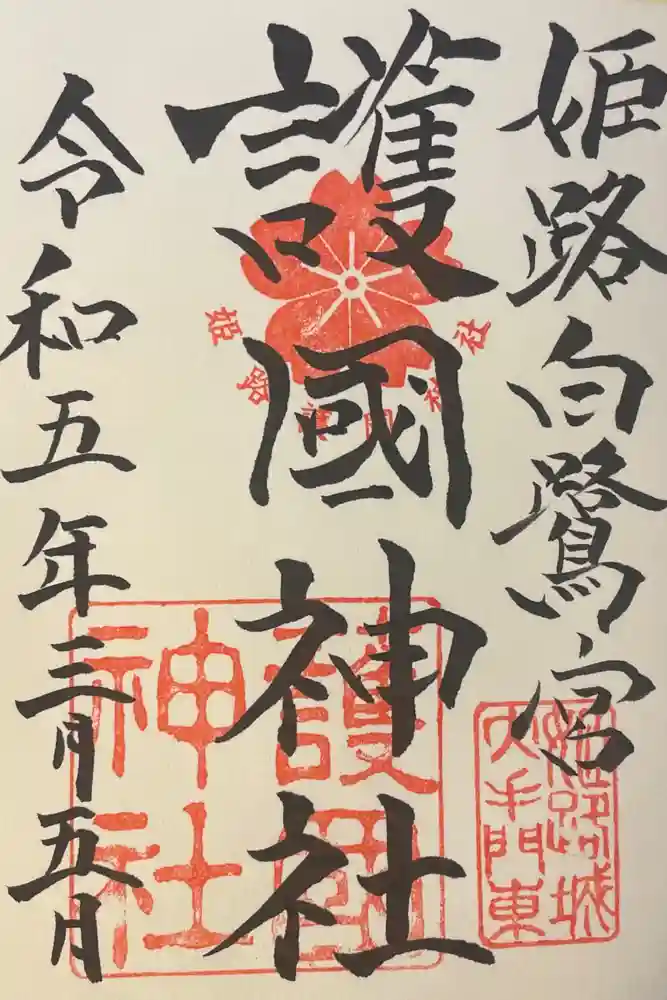 姫路白鷺宮
護國神社
令和五年三月五日
姫路護國神社
護國
神社
姫路城
大手門東